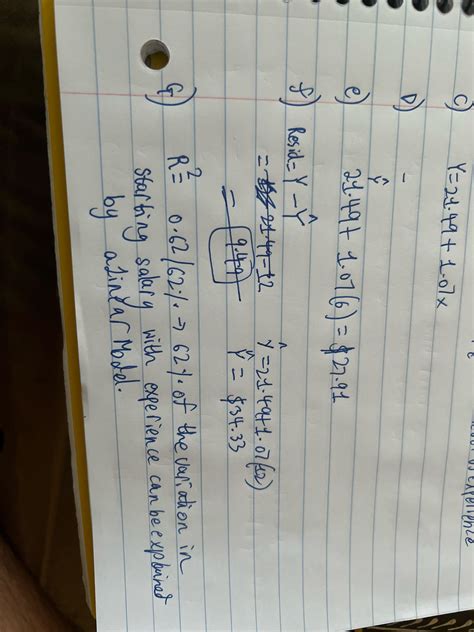 of experience
C) Y=21.49 + 1.07x
D) -
e) Ŷ
21.49 + 1.07(6) = $27.91
f) Resid = Y - Ŷ
= 21.49-12 Ŷ=21.49+1.07(12)
= 9.49 Ŷ = $34.33
G) R²= 0.62/62% → 62% of the variation in
starting salary with experience can be explained
by a Linear Model.